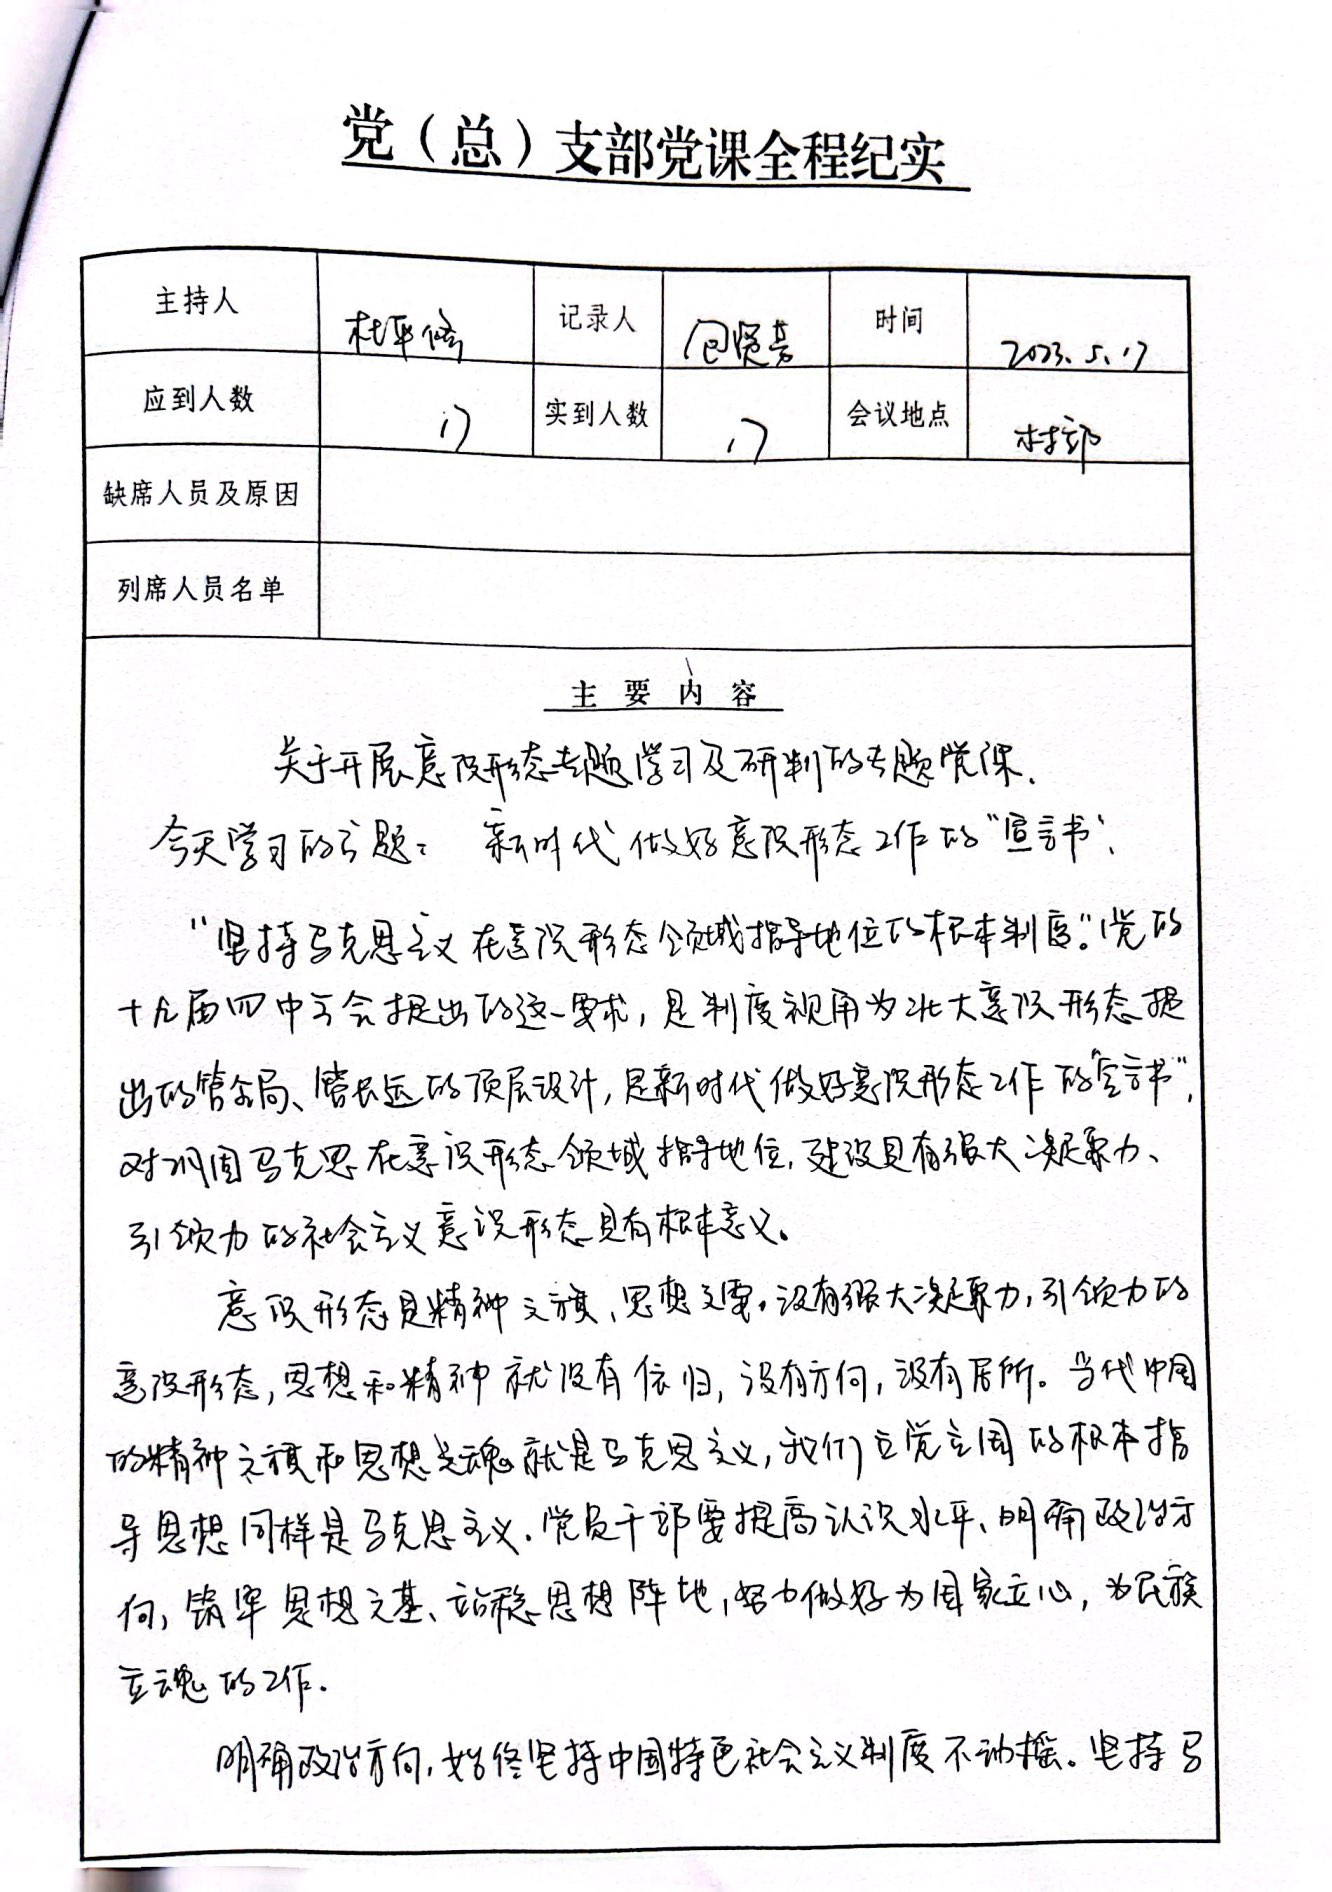 党（总）支部党课全程纪实
主持人 杜平修 记录人 包贤芳 时间 2023.5.17
应到人数 17 实到人数 17 会议地点 村部
缺席人员及原因
列席人员名单
主要内容
关于开展意识形态专题学习及研判的专题党课.
今天学习的主题：新时代做好意识形态工作的“宣言书”.
“坚持马克思主义在意识形态领域指导地位的根本制度”.党的
十九届四中全会提出的这一要求，是制度视角为壮大意识形态提
出的管全局、管长远的顶层设计，是新时代做好意识形态工作的“宣言书”，
对巩固马克思在意识形态领域指导地位，建设具有强大凝聚力、
引领力的社会主义意识形态具有根本意义。
意识形态是精神之旗、思想之魂。没有强大凝聚力，引领力的
意识形态，思想和精神就没有依归，没有方向，没有居所。当代中国
的精神之旗和思想之魂就是马克思主义，我们立党立国的根本指
导思想同样是马克思主义.党员干部要提高认识水平、明确政治方
向，筑牢思想之基、站稳思想阵地，努力做好为国家立心，为民族
立魂的工作.
明确政治方向，始终坚持中国特色社会主义制度不动摇。坚持马